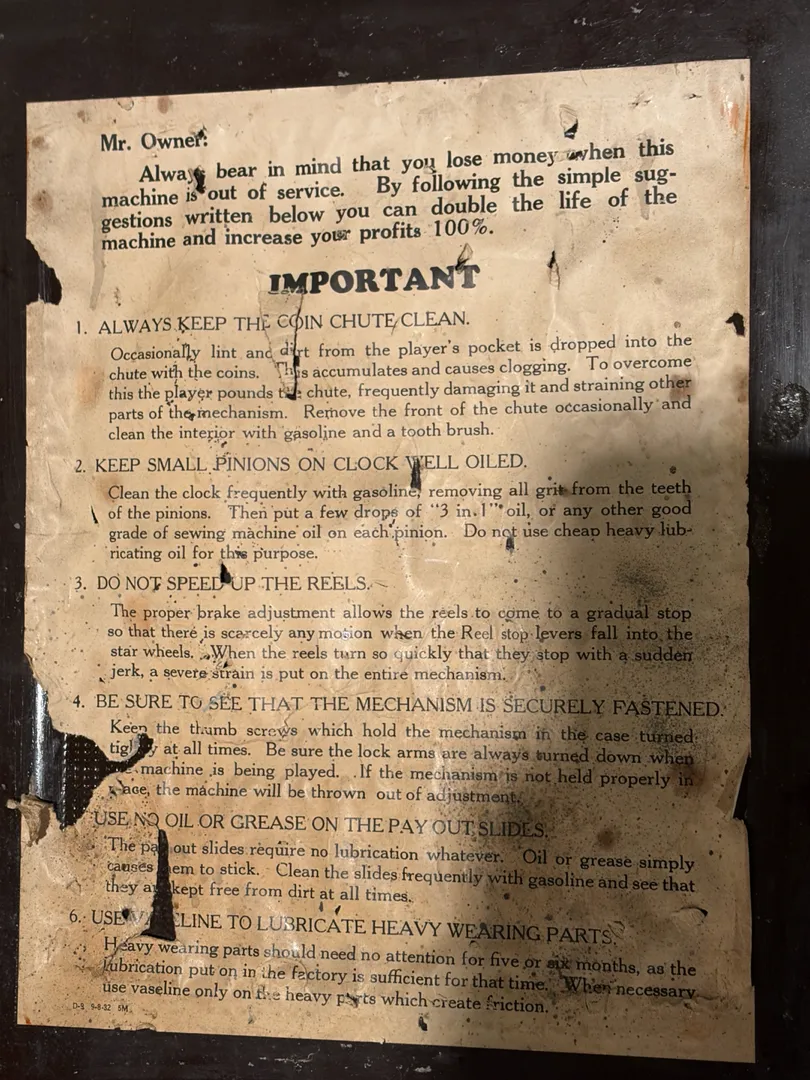 Mr. Owner:
Always bear in mind that you lose money when this
machine is out of service. By following the simple sug-
gestions written below you can double the life of the
machine and increase your profits 100%.
IMPORTANT
1. ALWAYS KEEP THE COIN CHUTE CLEAN.
Occasionally lint and dirt from the player's pocket is dropped into the
chute with the coins. This accumulates and causes clogging. To overcome
this the player pounds the chute, frequently damaging it and straining other
parts of the mechanism. Remove the front of the chute occasionally and
clean the interior with gasoline and a tooth brush.
2. KEEP SMALL PINIONS ON CLOCK WELL OILED.
Clean the clock frequently with gasoline, removing all grit from the teeth
of the pinions. Then put a few drops of "3 in 1" oil, or any other good
grade of sewing machine oil on each pinion. Do not use cheap heavy lub-
ricating oil for this purpose.
3. DO NOT SPEED UP THE REELS.
The proper brake adjustment allows the reels to come to a gradual stop
so that there is scarcely any motion when the Reel stop levers fall into the
star wheels. When the reels turn so quickly that they stop with a sudden
jerk, a severe strain is put on the entire mechanism.
4. BE SURE TO SEE THAT THE MECHANISM IS SECURELY FASTENED.
Keep the thumb screws which hold the mechanism in the case turned
tightly at all times. Be sure the lock arms are always turned down when
the machine is being played. If the mechanism is not held properly in
place, the machine will be thrown out of adjustment.
USE NO OIL OR GREASE ON THE PAY OUT SLIDES.
The pay out slides require no lubrication whatever. Oil or grease simply
causes them to stick. Clean the slides frequently with gasoline and see that
they are kept free from dirt at all times.
6. USE VASELINE TO LUBRICATE HEAVY WEARING PARTS.
Heavy wearing parts should need no attention for five or six months, as the
lubrication put on in the factory is sufficient for that time. When necessary
use vaseline only on the heavy parts which create friction.
D-5 9-8-32 5M